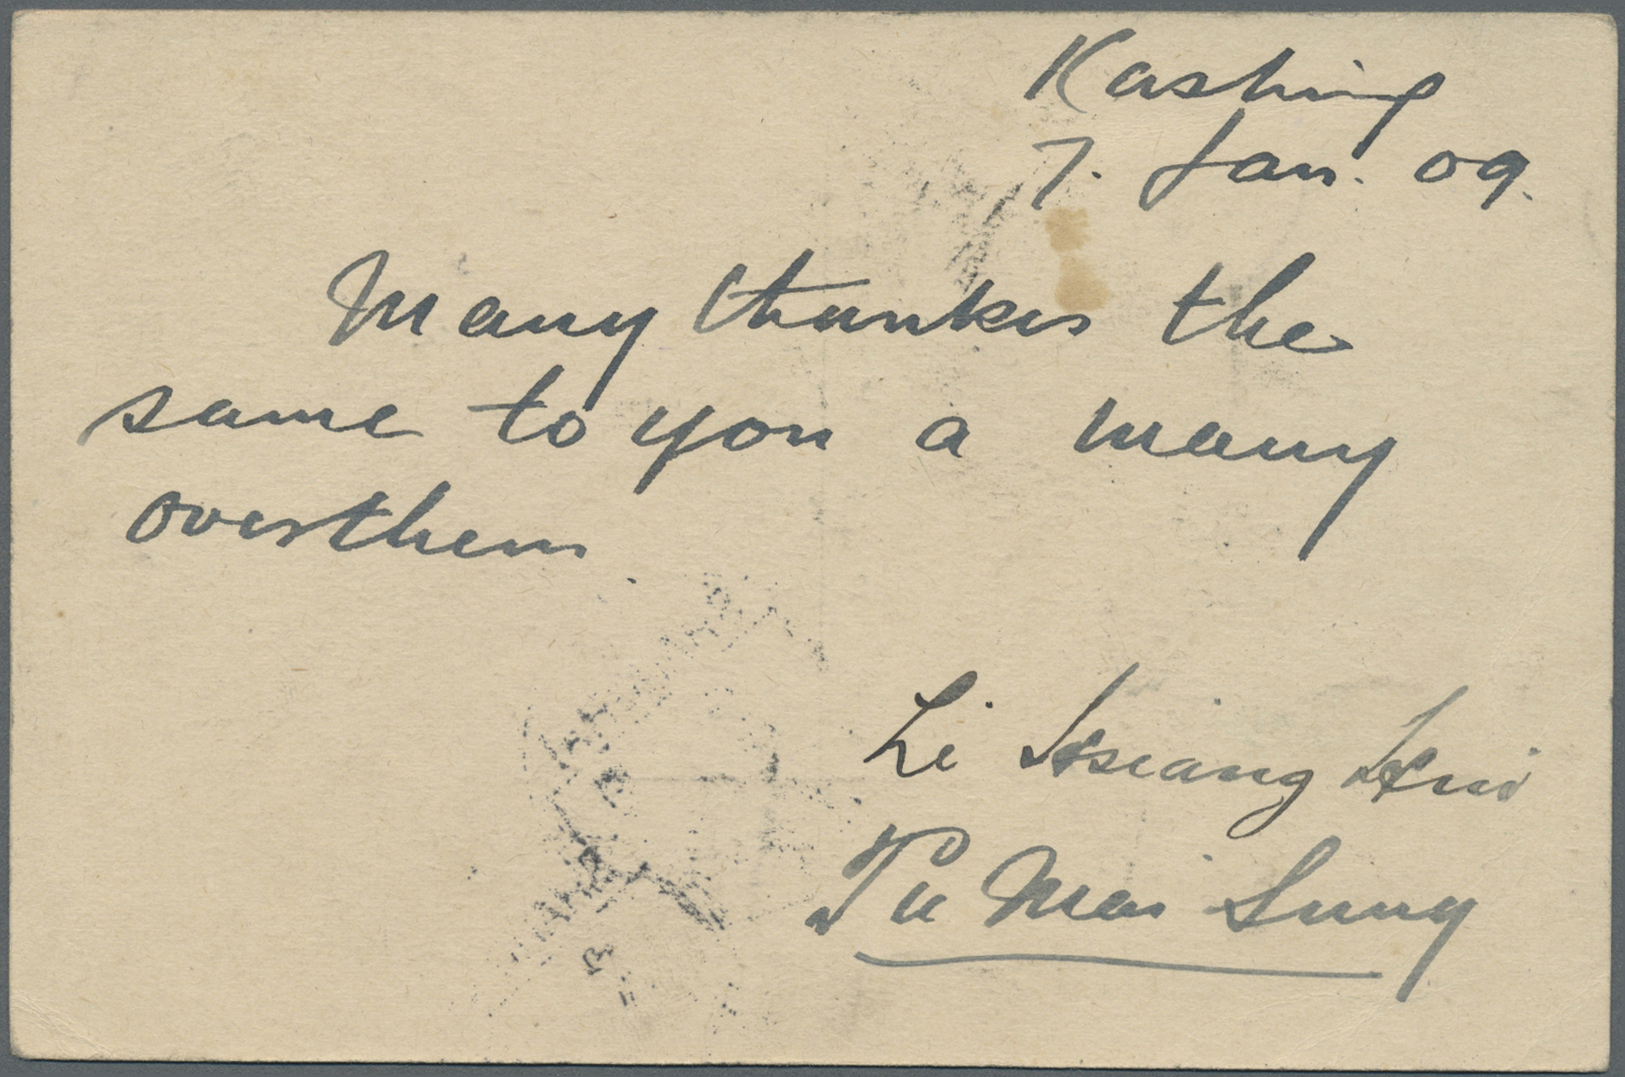 Kashing
7. Jan. 09.
Many thanks the
same to you a many
overthem.
Li Hsiang Hui
Pu Mai Sung